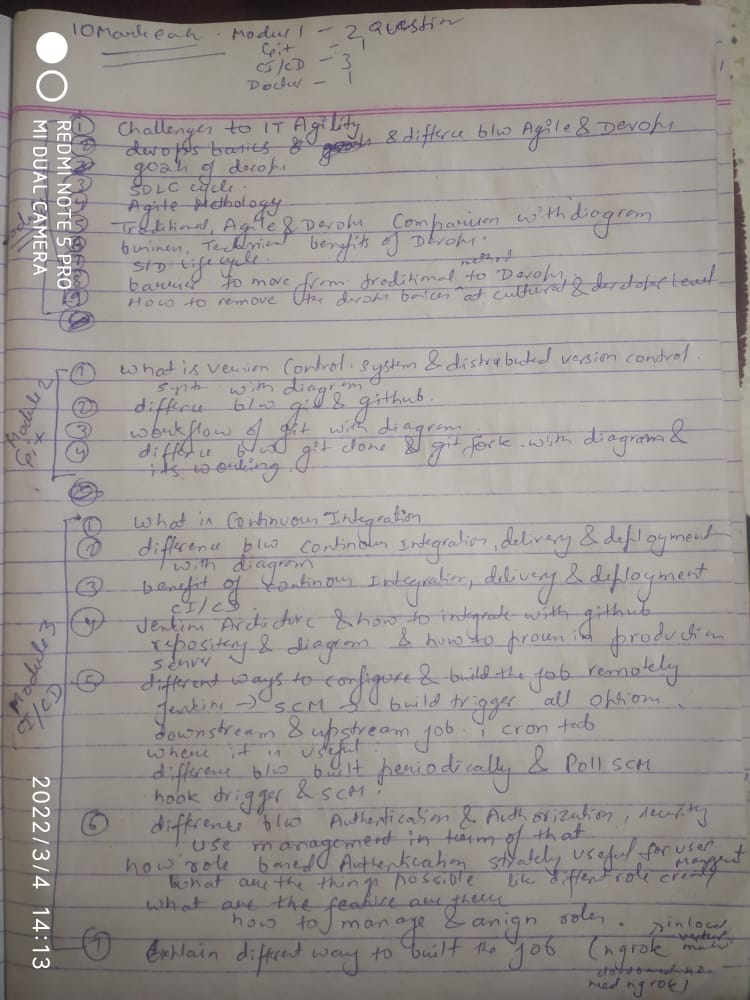 10 Mark each. Modul 1 - 2 Question
Git - 1
CI/CD - 3
Docker - 1
① Challenges to IT Agility
② devops basics & & differce b/w Agile & Devops
goals of devops
③ SDLC cycle.
④ Agile Methology
⑤ Traditional, Agile & Devops Comparison with diagram
⑥ business, Technical benefits of Devops.
⑦ S/D Life cycle.
⑧ barrier to move from traditional method to Devops.
⑨ How to remove the devops barier at cultural & developer Level
Module 2
Git
① what is version Control system & distributed version control
syste with diagram
② differce b/w git & github.
③ workflow of git with diagram.
④ differce b/w git clone & git fork with diagram &
its working.
Module 3
CI/CD
① what is Continuous Integration
② difference b/w continous Integration, delivery & deployment
with diagram
③ benefit of continous Integration, delivery & deployment
CI/CD.
④ Jenkins & how to integrate with github
repository & diagram & how to in production
server
⑤ different ways to configure & build the job remotely
Jenkins → SCM → build trigger all options.
downstream & upstream job, cron tab
where it is useful.
difference b/w built periodically & Poll SCM
hook trigger & SCM.
⑥ difference b/w Authentication & Authorization, security
use management in term of that
how role based Authentication useful for user
what are the things possible like diffent role
what are the feature are there
how to manage & assign roles.
⑦ Explain different way to built the job (ngrok
in local
REDMI NOTE 5 PRO
MI DUAL CAMERA
2022/3/4 14:13